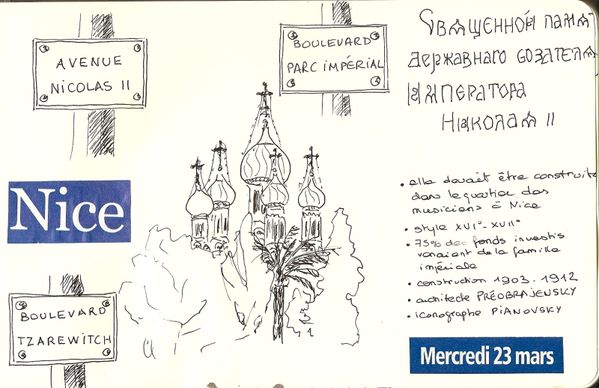 AVENUE
NICOLAS II
BOULEVARD
PARC IMPÉRIAL
Священной памя
державнаго созателя
императора
Николая II
Nice
• elle devait être construite
dans le quartier des
musiciens à Nice
• style XVI°-XVII°
• 75% des fonds investis
venaient de la famille
impériale
• construction 1903.1912
• architecte PRÉOBRAJENSKY
• iconographe PIANOVSKY
BOULEVARD
TZAREWITCH
Mercredi 23 mars